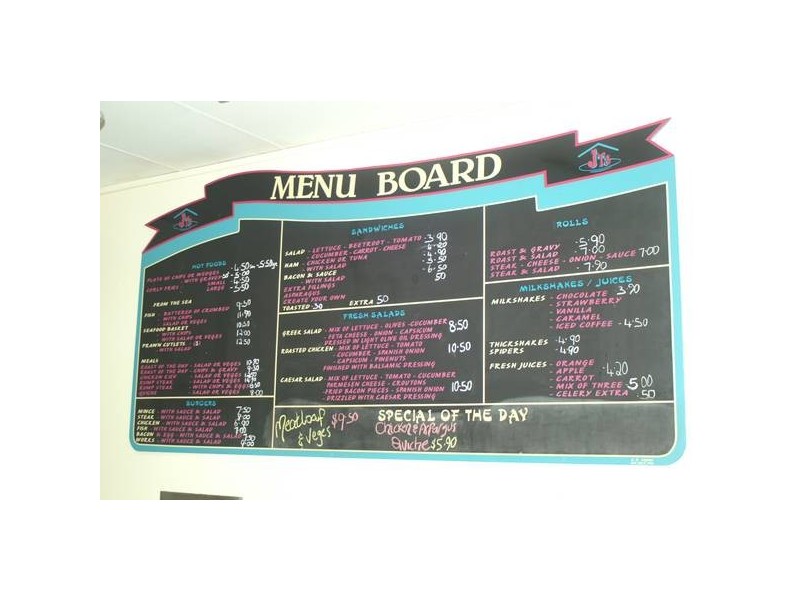 MENU BOARD
J's
J's
HOT FOODS
PLATE OF CHIPS OR WEDGES
WITH GRAVY
CURLY FRIES - SMALL
LARGE
FROM THE SEA
FISH - BATTERED OR CRUMBED 9.50
- WITH CHIPS 11.90
- SALAD OR VEGES
SEAFOOD BASKET 10.50
- WITH CHIPS 12.00
- WITH SALAD OR VEGES
PRAWN CUTLETS 12.00
- WITH SALAD
MEALS
ROAST OF THE DAY - SALAD OR VEGES
RUMP STEAK - SALAD OR VEGES
RUMP STEAK - WITH CHIPS & EGGS
QUICHE - SALAD OR VEGES 8.00
BURGERS
MINCE - WITH SAUCE & SALAD 7.50
STEAK - WITH SAUCE & SALAD
CHICKEN - WITH SAUCE & SALAD
FISH - WITH SAUCE & SALAD 7.00
BACON & EGG - WITH SAUCE & SALAD
WORKS - WITH SAUCE & SALAD
SANDWICHES
SALAD - LETTUCE - BEETROOT - TOMATO 3.90
- CUCUMBER - CARROT - CHEESE
HAM - CHICKEN OR TUNA
- WITH SALAD 5.50
BACON & SAUCE
- WITH SALAD 6.50
EXTRA FILLINGS 50
ASPARAGUS
CREATE YOUR OWN
TOASTED .30 EXTRA 50
FRESH SALADS
GREEK SALAD - MIX OF LETTUCE - OLIVES - CUCUMBER 8.50
- FETA CHEESE - ONION - CAPSICUM
DRESSED IN LIGHT OLIVE OIL DRESSING
ROASTED CHICKEN - MIX OF LETTUCE - TOMATO 10.50
- CUCUMBER - SPANISH ONION
- CAPSICUM - PINENUTS
FINISHED WITH BALSAMIC DRESSING
CAESAR SALAD - MIX OF LETTUCE - TOMATO - CUCUMBER
PARMESEN CHEESE - CROUTONS
- FRIED BACON PIECES - SPANISH ONION 10.50
- DRIZZLED WITH CAESAR DRESSING
ROLLS
ROAST & GRAVY 5.90
ROAST & SALAD 7.00
STEAK - CHEESE - ONION - SAUCE 7.00
STEAK & SALAD 7.90
MILKSHAKES / JUICES
MILKSHAKES - CHOCOLATE 3.90
- STRAWBERRY
- VANILLA
- CARAMEL
- ICED COFFEE - 4.50
THICKSHAKES - 4.90
SPIDERS - 4.90
FRESH JUICES - ORANGE
- APPLE 4.20
- CARROT
- MIX OF THREE - 5.00
- CELERY EXTRA .50
SPECIAL OF THE DAY
Meatloaf $9.50
& Veges
Chicken & Aspargus
Quiche $5.90